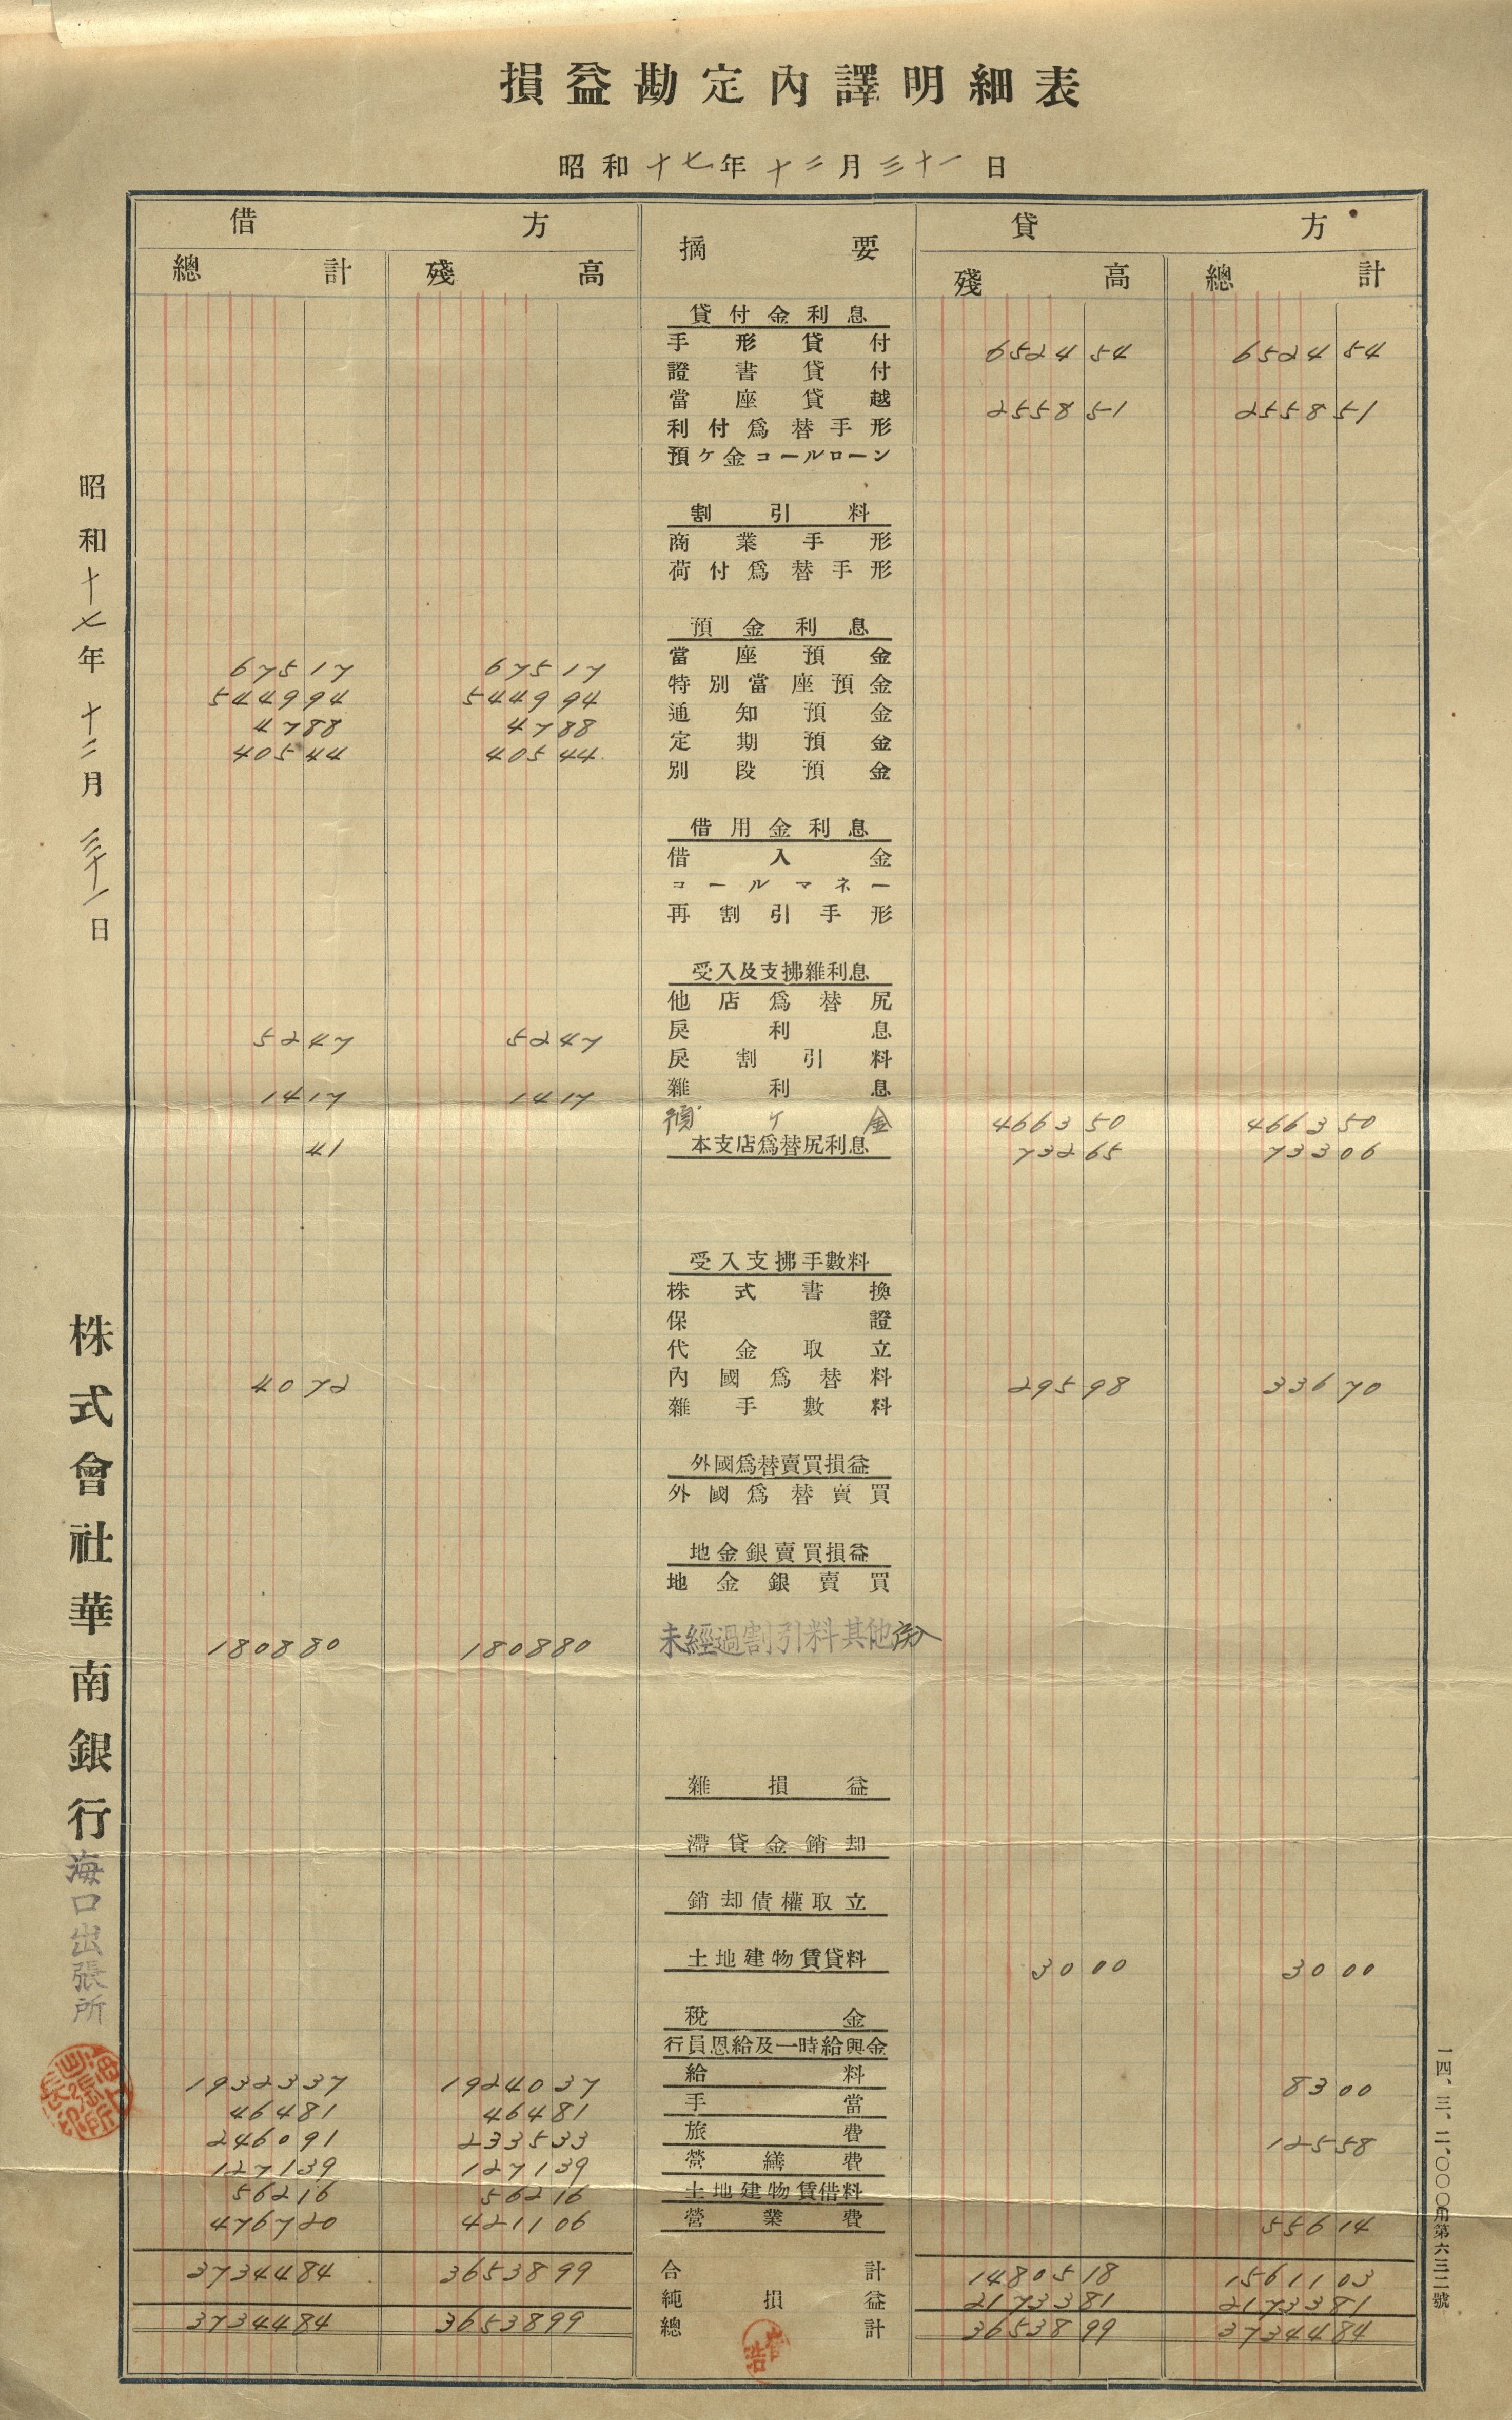 損益勘定內譯明細表
昭和十七年十二月三十一日
借方 摘要 貸方
總計 殘高 殘高 總計
貸付金利息
手形貸付 6524 54 6524 54
證書貸付
當座貸越 2558 51 2558 51
利付爲替手形
預ケ金コールローン
割引料
商業手形
荷付爲替手形
預金利息
675 17 675 17 當座預金
5449 94 5449 94 特別當座預金
47 88 47 88 通知預金
405 44 405 44 定期預金
別段預金
借用金利息
借入金
コールマネー
再割引手形
受入及支拂雜利息
他店爲替尻
52 47 52 47 戾利息
戾割引料
14 17 14 17 雜利息
預ケ金 4663 50 4663 50
41 本支店爲替尻利息 732 65 733 06
受入支拂手數料
株式書換
保證
代金取立
40 72 內國爲替料 295 98 336 70
雜手數料
外國爲替賣買損益
外國爲替賣買
地金銀賣買損益
地金銀賣買
1808 80 1808 80 未經過割引料其他
雜損益
滯貸金銷却
銷却債權取立
土地建物賃貸料 30 00 30 00
稅金
行員恩給及一時給與金
19323 37 19240 37 給料 83 00
464 81 464 81 手當
2460 91 2335 33 旅費 125 58
1271 39 1271 39 營繕費
562 16 562 16 土地建物賃借料
4767 20 4211 06 營業費 556 14
37344 84 36538 99 合計 14805 18 15611 03
純損益 21733 81 21733 81
37344 84 36538 99 總計 36538 99 37344 84
昭和十七年十二月三十一日
株式會社華南銀行海口出張所
一四、三、二、〇〇〇用第六三二號